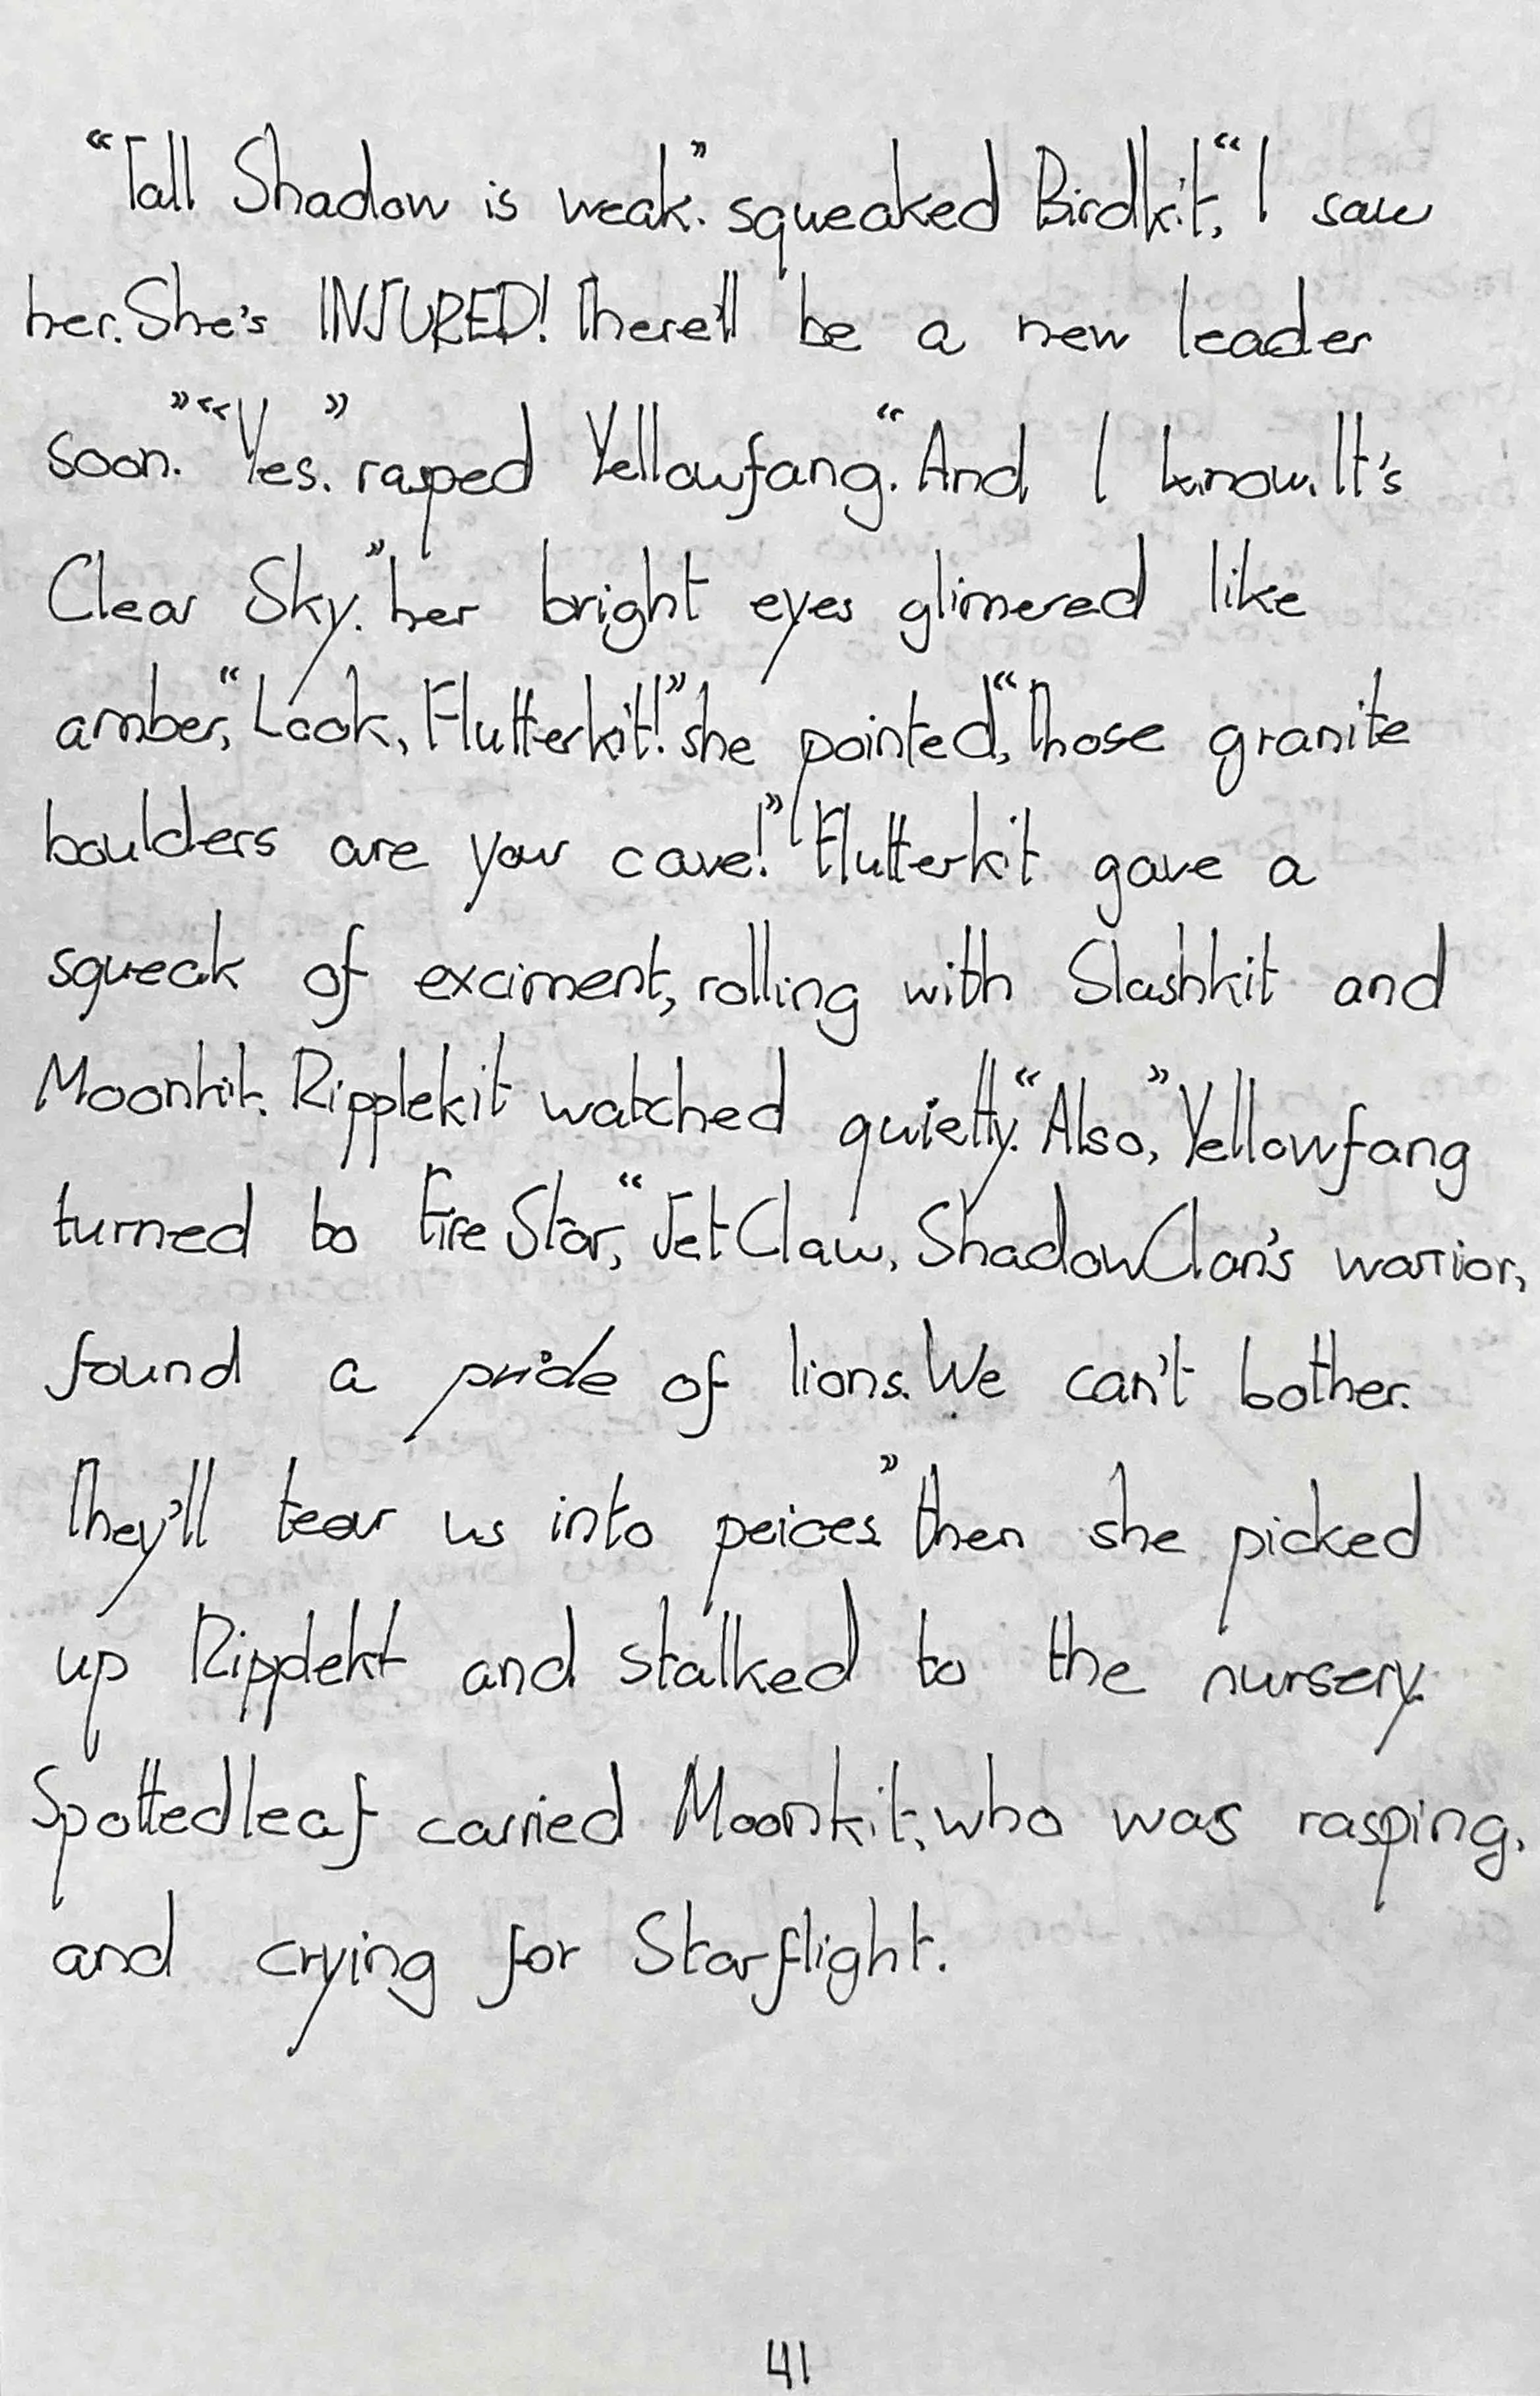 “Tall Shadow is weak.” squeaked Birdkit, “I saw
her. She's INJURED! There'll be a new leader
soon.” “Yes.” rasped Yellowfang. “And I know. It's
Clear Sky.” her bright eyes glimered like
amber, “Look, Flutterkit!” she pointed, “Those granite
boulders are your cave!” Flutterkit gave a
squeak of exciment, rolling with Slashkit and
Moonkit. Ripplekit watched quietly. “Also,” Yellowfang
turned to Fire Star, “Jet Claw, ShadowClan's warrior,
found a pride of lions. We can't bother.
They'll tear us into peices.” then she picked
up Ripplekt and stalked to the nursery.
Spottedleaf carried Moonkit, who was rasping,
and crying for Starflight.
41